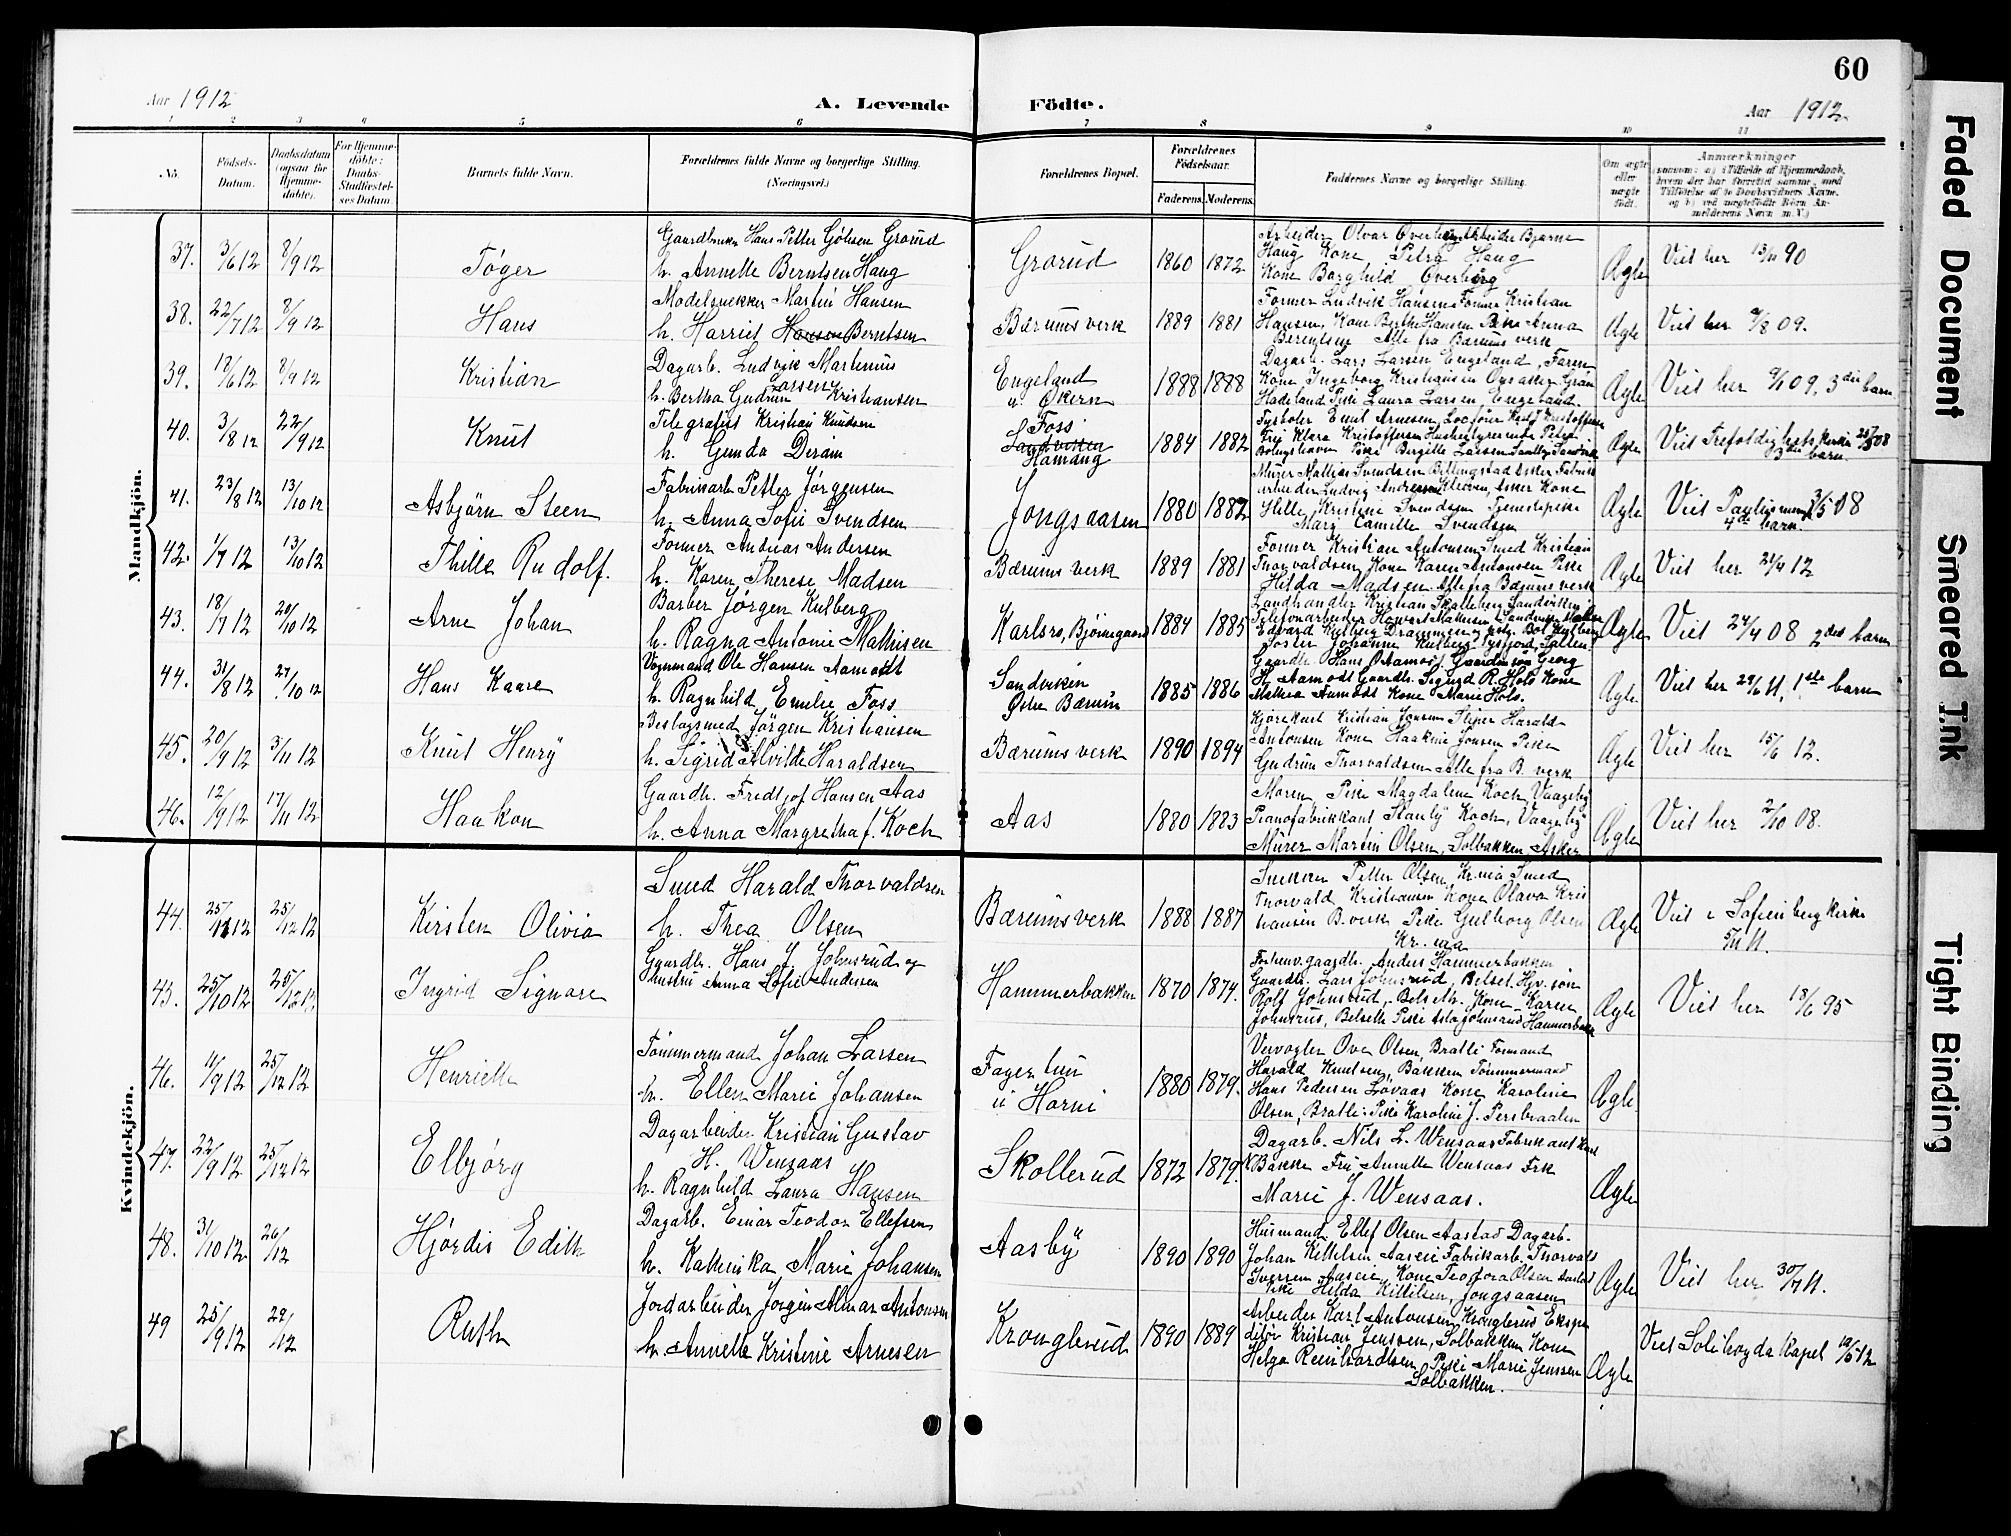 60
Aar 1912
A. Levende Födte.
Aar 1912.
1 2 3 4 5 6 7 8 9 10 11
No.
Födsels-Datum.
Daabsdatum (ogsaa for Hjemmedöbte).
For Hjemmedöbte: Daabs-Stadfæstelses Datum.
Barnets fulde Navn.
Forældrenes fulde Navne og borgerlige Stilling. (Næringsvei.)
Forældrenes Bopæl.
Forældrenes Födselsaar.
Faderens. Moderens.
Faddernes Navne og borgerlige Stilling.
Om ægte eller uægte födt.
Anmærkninger
Mandkjön.
37. 3/6 12 8/9 12 Töger
Gaardbruker Hans Petter Gjölsen Grorud
h. Annette Berntsen Haug
Grorud 1860 1872
Arbeider Olvar Överberg Arbeider Bjarne
Haug Kone Petra Haug
Kone Borghild Överberg
Ægte Viet her 13/11 90
38. 22/7 12 8/9 12 Hans
Modelsnekker Martin Hansen
h. Harriet Hansen Berntsen
Bærums verk 1889 1881
Former Ludvik Hansen Former Kristian
Hansen, Kone Berthe Hansen Pike Anna
Berentsen Alle fra Bærums verk
Ægte Viet her 9/8 09.
39. 18/6 12 8/9 12 Kristian
Dagarb. Ludvik Martinius
Larsen
h. Bertha Gudrun Kristiansen
Engeland
u. Økern 1888 1888
Dagarb. Lars Larsen Engeland, Faren
Kone Ingeborg Kristiansen Opsaker Gran
Hadeland Pike Laura Larsen Engeland.
Ægte Viet her 9/1 09, 3die barn
40. 3/8 12 22/9 12 Knut
Telegrafist Kristian Knudsen
h. Gunda Deram
Foss
Sandviken
Hamang 1884 1882
Frij Klara Kristoffersen Husbestyrerinde Petra
Bolingshavn Pike Bergitte Larsen
Ægte Viet Trefoldighets kirke 25/3 08
3die barn
41. 23/8 12 13/10 12 Asbjørn Steen
Fabrikarb Petter Jørgensen
h. Anna Sofie Svendsen
Jongsaasen 1880 1882
Murer Mathias Svendsen Billingstad Asker Fabrik
arbeider Ludvig Andresen Kleiven, Asker Kone
Hilde Kristine Svendsen Tjenestepike
Marg Camille Svendsen
Ægte Viet Paulus menigh 3/5 08
4de barn.
42. 1/7 12 13/10 12 Thille Rudolf.
Former Andreas Andersen
h. Karen Therese Madsen
Bærums verk 1889 1881
Former Kristian Antonsen Smed Kristian
Thorvaldsen, Kone Karen Antonsen Pike
Hilda Madsen. Alle fra Bærums verk
Ægte Viet her 21/4 12
43. 18/7 12 20/10 12 Arne Johan
Barber Jørgen Kulberg
h. Ragna Antonie Mathisen
Karlsro, Bjørnegaard 1884 1885
Landhandler Kristian Skalleberg Sandviken
Telefonarbeider Howart Mathisen Sandviken
Edvard Kulberg Drammen
Søster Johanne Kulberg
Ægte Viet 24/4 08 2det barn
44. 31/8 12 27/10 12 Hans Kaare
Vognmand Ole Hansen Aamodt
h. Ragnhild Emelie Foss
Sandviken
Østre Bærum 1885 1886
Gaardbr. Hans O Aamodt Gaardmandssøn Georg
H. Aamodt Gaardbr. Sigurd R. Hols Kone
Mathea Aamodt Kone Marie Hols.
Ægte Viet her 29/6 11, 1ste barn
45. 20/9 12 3/11 12 Knut Henrÿ
Beslagsmed Jörgen Kristiansen
h. Sigrid Alvilde Haraldsen
Bærums verk 1890 1894
Kjørekarl Kristian Jonsen Sliper Harald
Antonsen Kone Haakine Jonsen Pike
Gudrun Thorvaldsen Alle fra B. verk
Ægte Viet her 15/6 12.
46. 12/9 12 17/11 12 Haakon
Gaardbr. Fredtjof Hansen Aas
h. Anna Margretha f. Koch
Aas 1880 1883
Moren, Pike Magdalene Koch, Vaagebÿ
Pianofabrikkant Stanlÿ Koch, Vaagebÿ
Murer Martin Olsen, Solbakken Asker
Ægte Viet her 2/10 08.
Kvindekjön.
44. 25/11 12 25/12 12 Kirsten Olivia
Smed Harald Thorvaldsen
h. Thea Olsen
Bærums verk 1888 1887
Snekker Petter Olsen Kr.nia Smed
Thorvald Kristiansen Kone Olava Kris
tiansen B. verk Pike Gulborg Olsen
Kr.nia
Ægte Viet i Sofienberg kirke
5/11 11.
45. 25/10 12 25/12 12. Ingrid Signore
Gaardbr. Hans J Johnsrud og
hustru Anna Sofie Andersen
Hammerbakken 1870 1874.
Forhenv. gaardbr. Anders Hammerbakken
Gaardbr. Lars Johnsrud, Belset. Gbr. søn
Rolf Johnsrud, Belseth. Kone Karen
Johnsrud, Belseth Pike Asta Johnsrud Hammerbakk
Ægte Viet her 18/6 95
46. 11/9 12 25/12 12 Henriette
Tømmermand Johan Larsen
h. Ellen Marie Johansen
Fagertun
u Horni 1880 1879.
Veivogter Ove Olsen, Bratli Formand
Harald Knutsen, Bakken Tømmermand
Hans Pedersen Løvaas Kone Karoline
Olsen, Bratli. Pike Karoline J. Persbraaten
Ægte
47. 22/9 12 25/12 12 Elbjørg
Dagarbeider Kristian Gustav
H. Wensaas
h. Ragnhild Laura Hansen
Skollerud 1872 1879.
Dagarb. Nils L. Wensaas Fabrikant Karl
N Bakke Fru Annette Wensaas Frk
Marie J. Wensaas.
Ægte
48. 31/10 12 26/12 Hjørdis Edith
Dagarb. Einar Teodor Ellefsen
h. Kathinka Marie Johansen
Aasbÿ 1890 1890
Husmand Ellef Olsen Aastad Dagarb.
Johan Kittelsen Aaseie Fabrikarb. Thorvald
Iversen Aaseie, Kone Teodora Olsen Aastad
Pike Hilda Kittelsen, Jongsaasen
Ægte Viet her 30/7 11.
49 25/9 12 29/12 Ruth
Jordarbeider Jørgen Almar Antonsen
h. Annette Kristine Arnesen
Kronglerud 1890 1889
Arbeider Karl Antonsen, Kronglerud Ekspe
ditør Kristian Jenssen, Solbakken Kone
Helga Reinhardtsen Pike Marie Jenssen
Solbakken.
Ægte Viet Solihøgda Kapel 12/5 12
Faded Document
Smeared Ink
Tight Binding